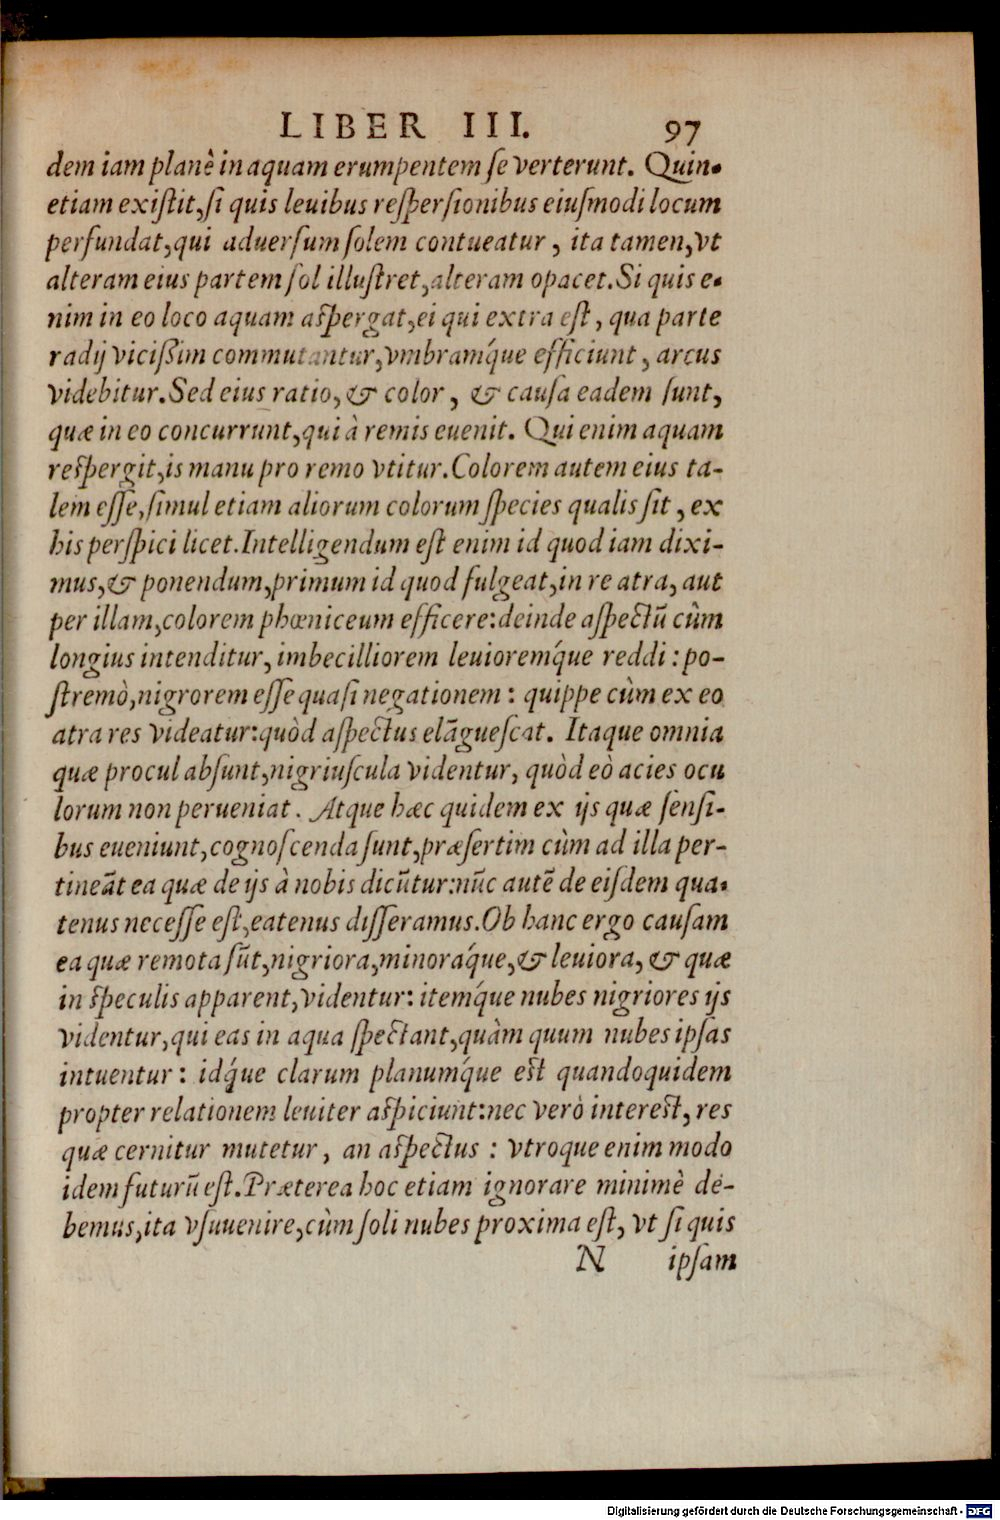 LIBER III. 97
dem iam planè in aquam erumpentem ſe verterunt. Quin-
etiam exiſtit, ſi quis leuibus reſperſionibus eiuſmodi locum
perfundat, qui aduerſum ſolem contueatur, ita tamen, vt
alteram eius partem ſol illuſtret, alteram opacet. Si quis e-
nim in eo loco aquam aſpergat, ei qui extra eſt, qua parte
radij viciſſim commutantur, vmbramq́ue efficiunt, arcus
videbitur. Sed eius ratio, & color, & cauſa eadem ſunt,
quæ in eo concurrunt, qui à remis euenit. Qui enim aquam
reſpergit, is manu pro remo vtitur. Colorem autem eius ta-
lem eſſe, ſimul etiam aliorum colorum ſpecies qualis ſit, ex
his perſpici licet. Intelligendum eſt enim id quod iam dixi-
mus, & ponendum, primum id quod fulgeat, in re atra, aut
per illam, colorem phœniceum efficere: deinde aſpectū cùm
longius intenditur, imbecilliorem leuioremq́ue reddi: po-
ſtremò, nigrorem eſſe quaſi negationem: quippe cùm ex eo
atra res videatur: quòd aſpectus elāgueſcat. Itaque omnia
quæ procul abſunt, nigriuſcula videntur, quòd eò acies ocu
lorum non perueniat. Atque hæc quidem ex ijs quæ ſenſi-
bus eueniunt, cognoſcenda ſunt, præſertim cùm ad illa per-
tineāt ea quæ de ijs à nobis dicūtur: nūc autē de eiſdem qua-
tenus neceſſe eſt, eatenus diſſeramus. Ob hanc ergo cauſam
ea quæ remota ſūt, nigriora, minoraq́ue, & leuiora, & quæ
in ſpeculis apparent, videntur: itemq́ue nubes nigriores ijs
videntur, qui eas in aqua ſpectant, quàm quum nubes ipſas
intuentur: idq́ue clarum planumq́ue eſt quandoquidem
propter relationem leuiter aſpiciunt: nec verò intereſt, res
quæ cernitur mutetur, an aſpectus: vtroque enim modo
idem futurū eſt. Præterea hoc etiam ignorare minimè de-
bemus, ita vſuuenire, cùm ſoli nubes proxima eſt, vt ſi quis
N ipſam
Digitalisierung gefördert durch die Deutsche Forschungsgemeinschaft - DFG